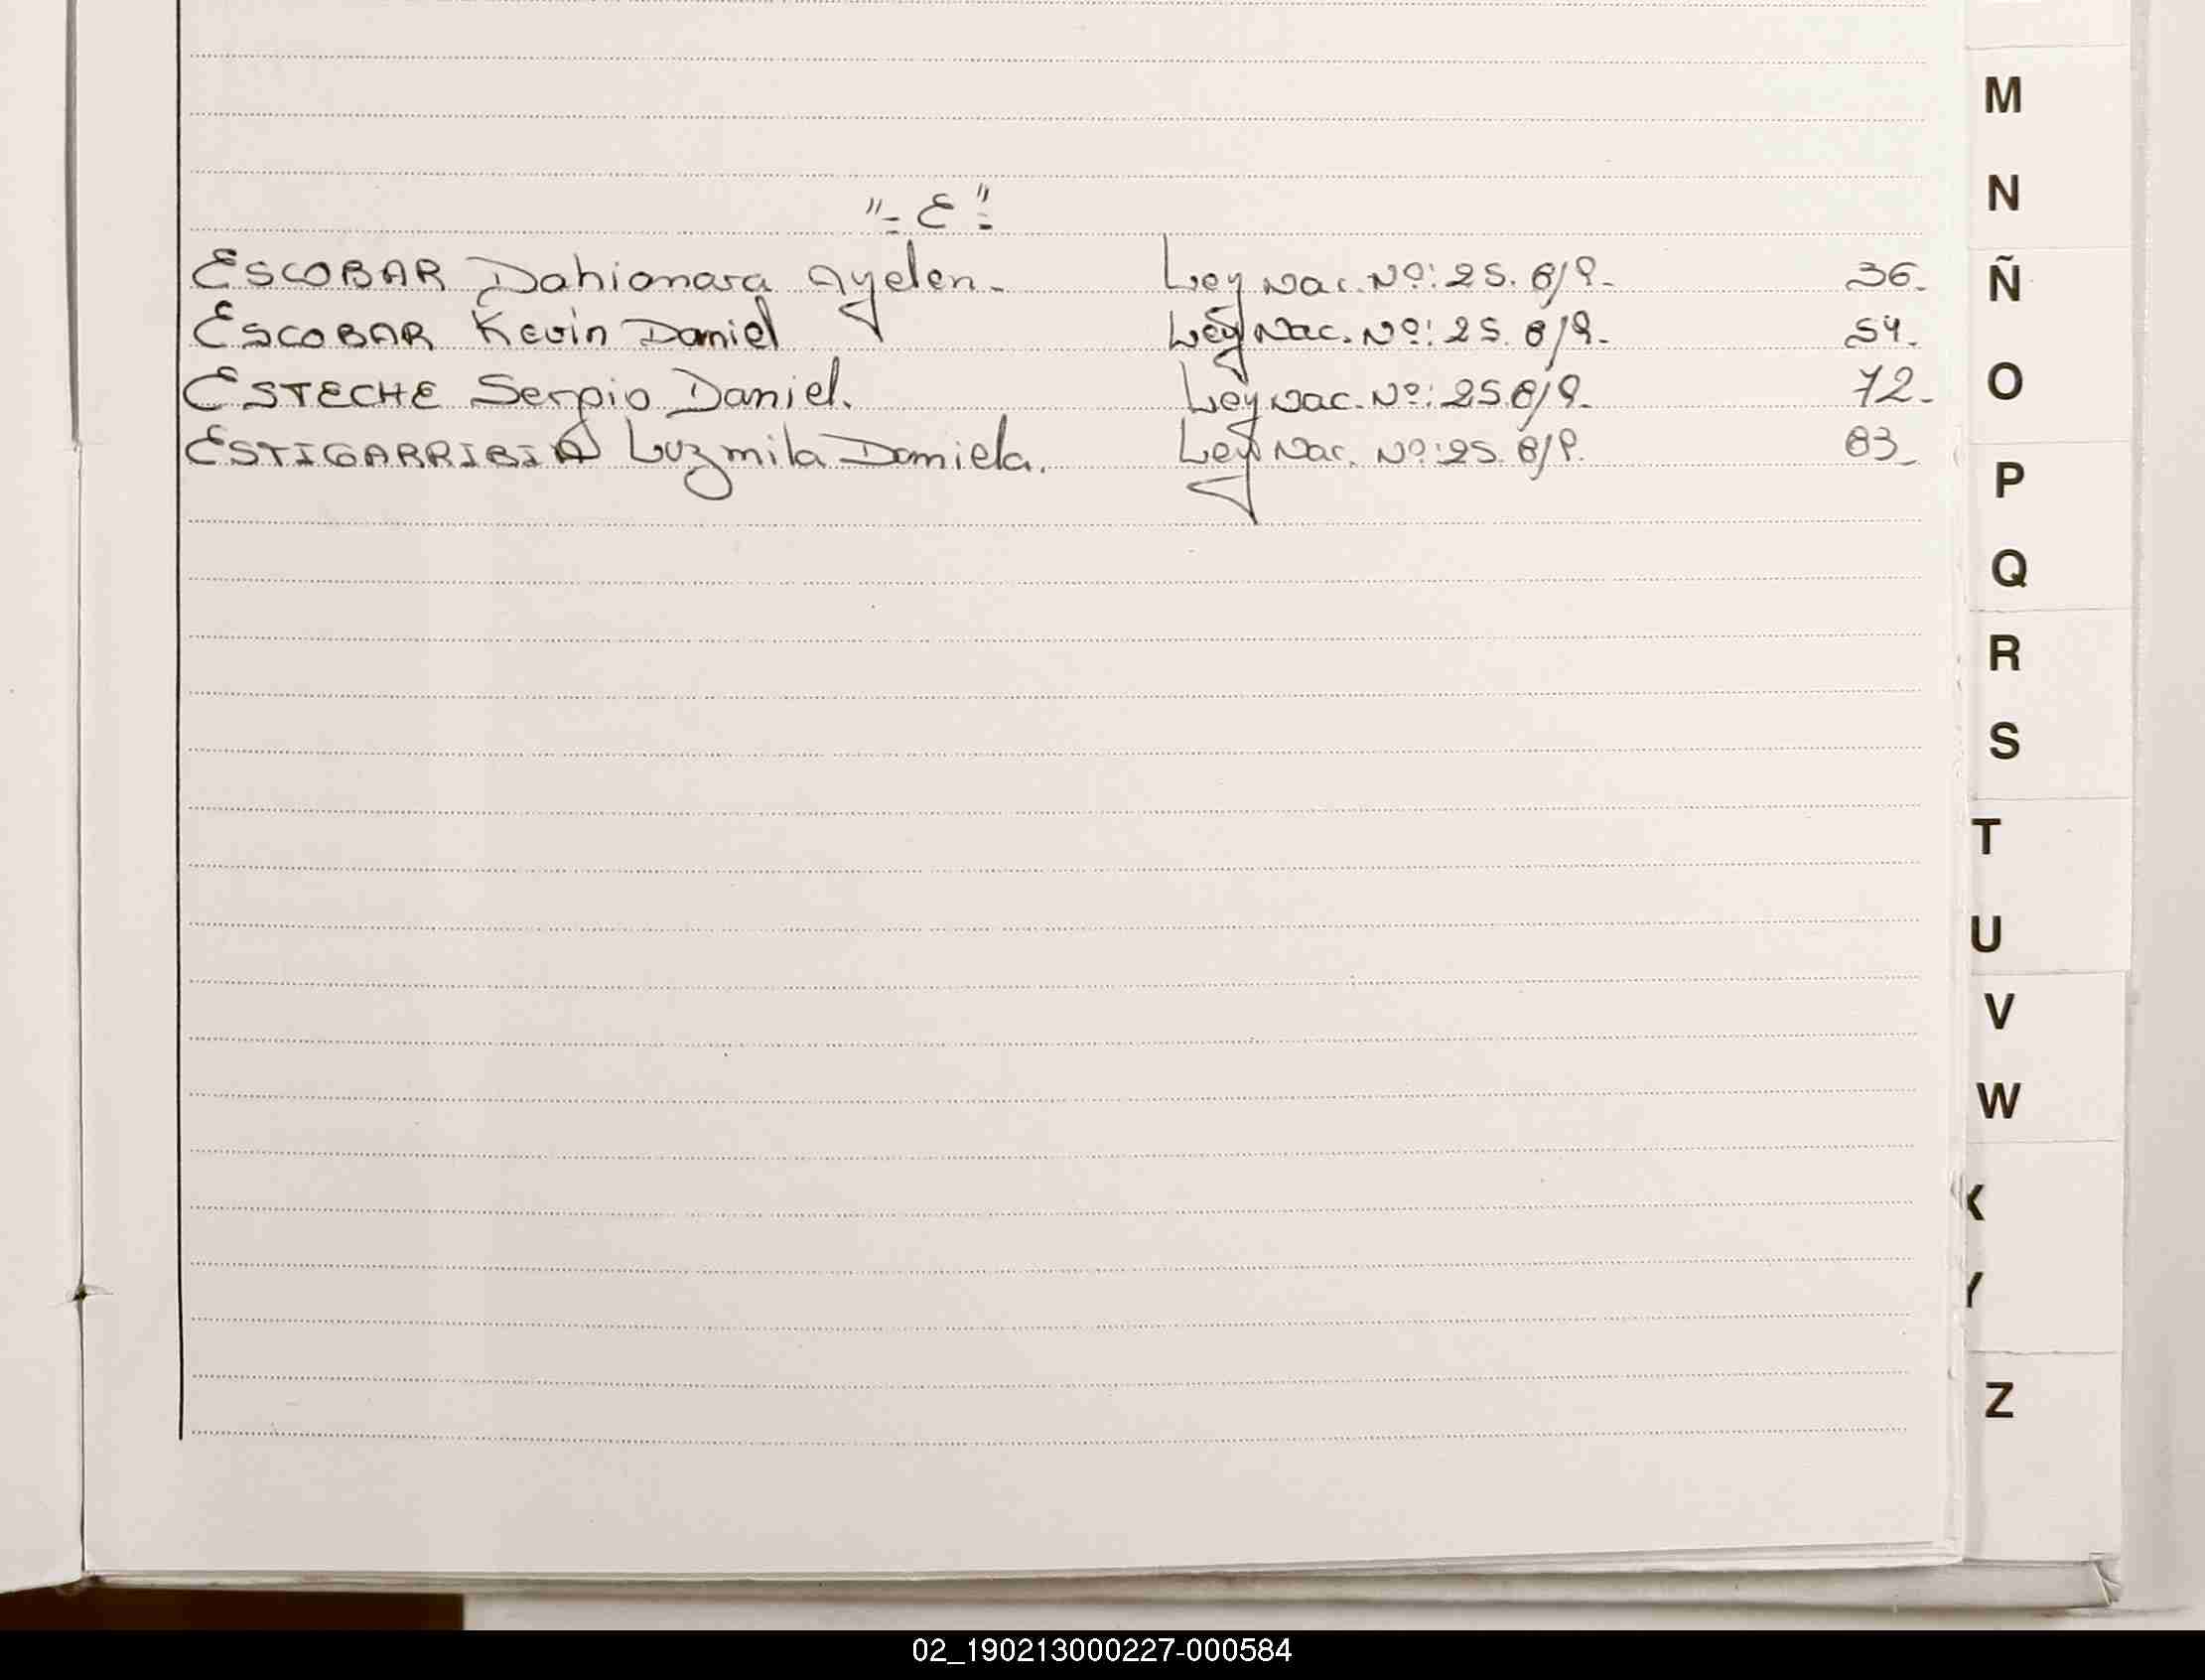 "= E "=
ESCOBAR Dahianara Ayelen. Ley Nac. Nº: 25.819. 36.
ESCOBAR Kevin Daniel Ley Nac. Nº: 25.819. 54.
ESTECHE Sergio Daniel. Ley Nac. Nº: 25.819. 72.
ESTIGARRIBIA Luzmila Daniela. Ley Nac. Nº: 25.819. 83
M
N
Ñ
O
P
Q
R
S
T
U
V
W
X
Y
Z
02_190213000227-000584